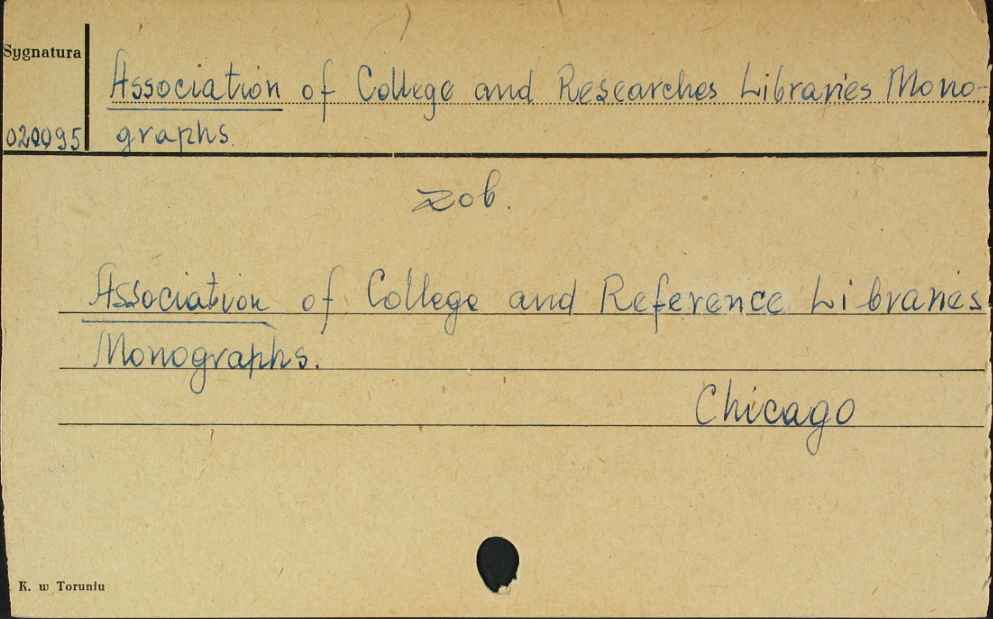 Sygnatura
Association of College and Researches Libraries Mono-
020095 graphs.
zob.
Association of College and Reference Libraries
Monographs.
Chicago
K. w Toruniu